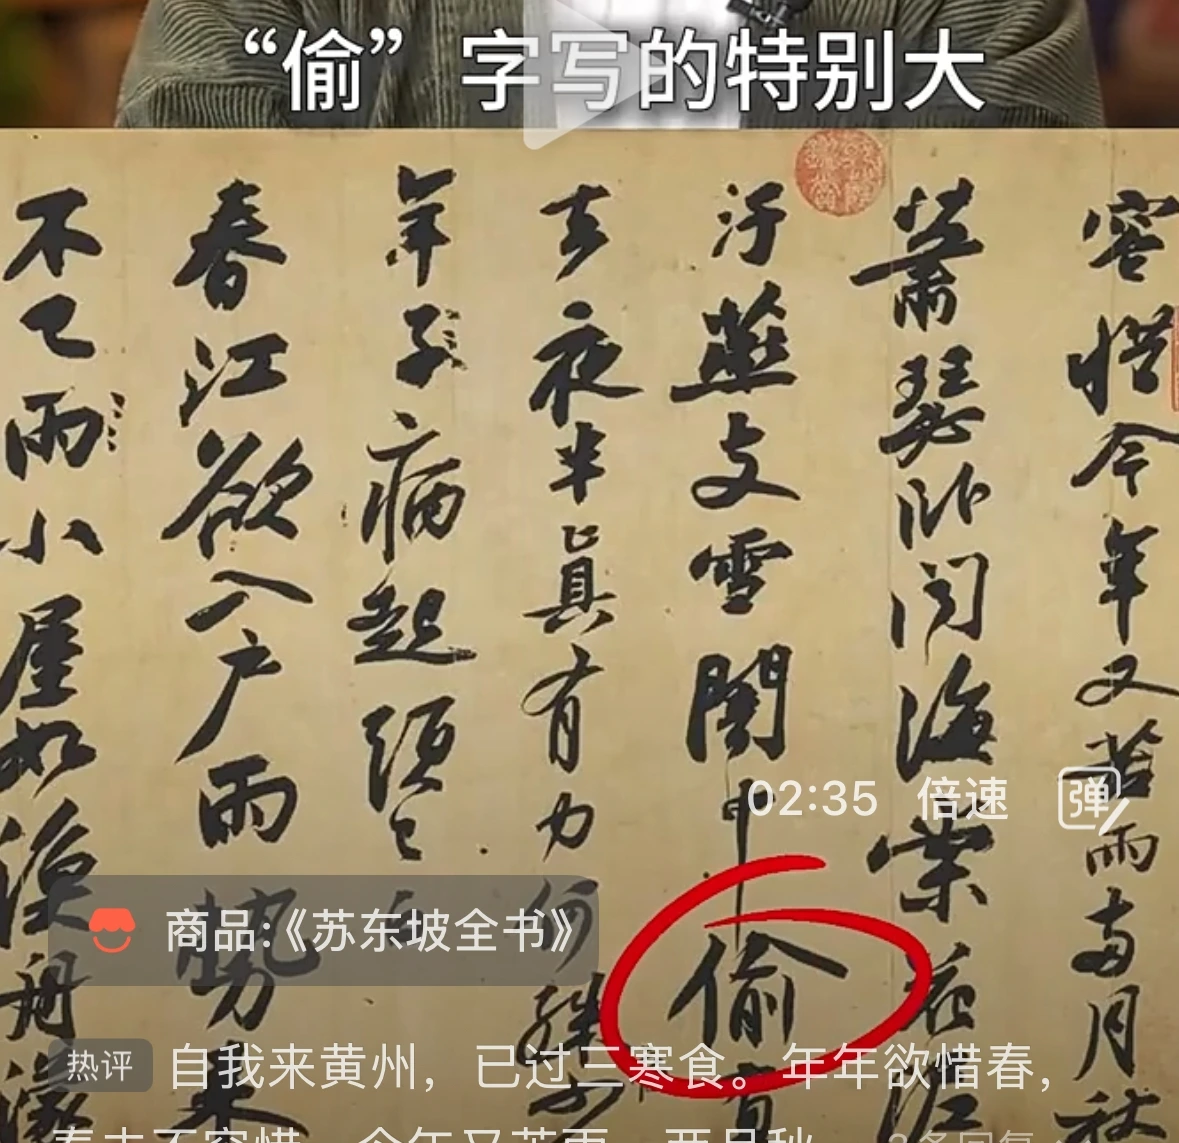 “偷”字写的特别大
容惜今年又苦雨兩月秋
蕭瑟卧闻海棠花泥
汙燕支雪闇中偷負
去夜半真有力何殊少
年子:病起須〻已
春江欲入户雨勢来
不已雨:小屋如漁舟濛
02:35 倍速 弹
商品:《苏东坡全书》
热评 自我来黄州，已过三寒食。年年欲惜春，
春去不容惜。今年又苦雨，两月秋